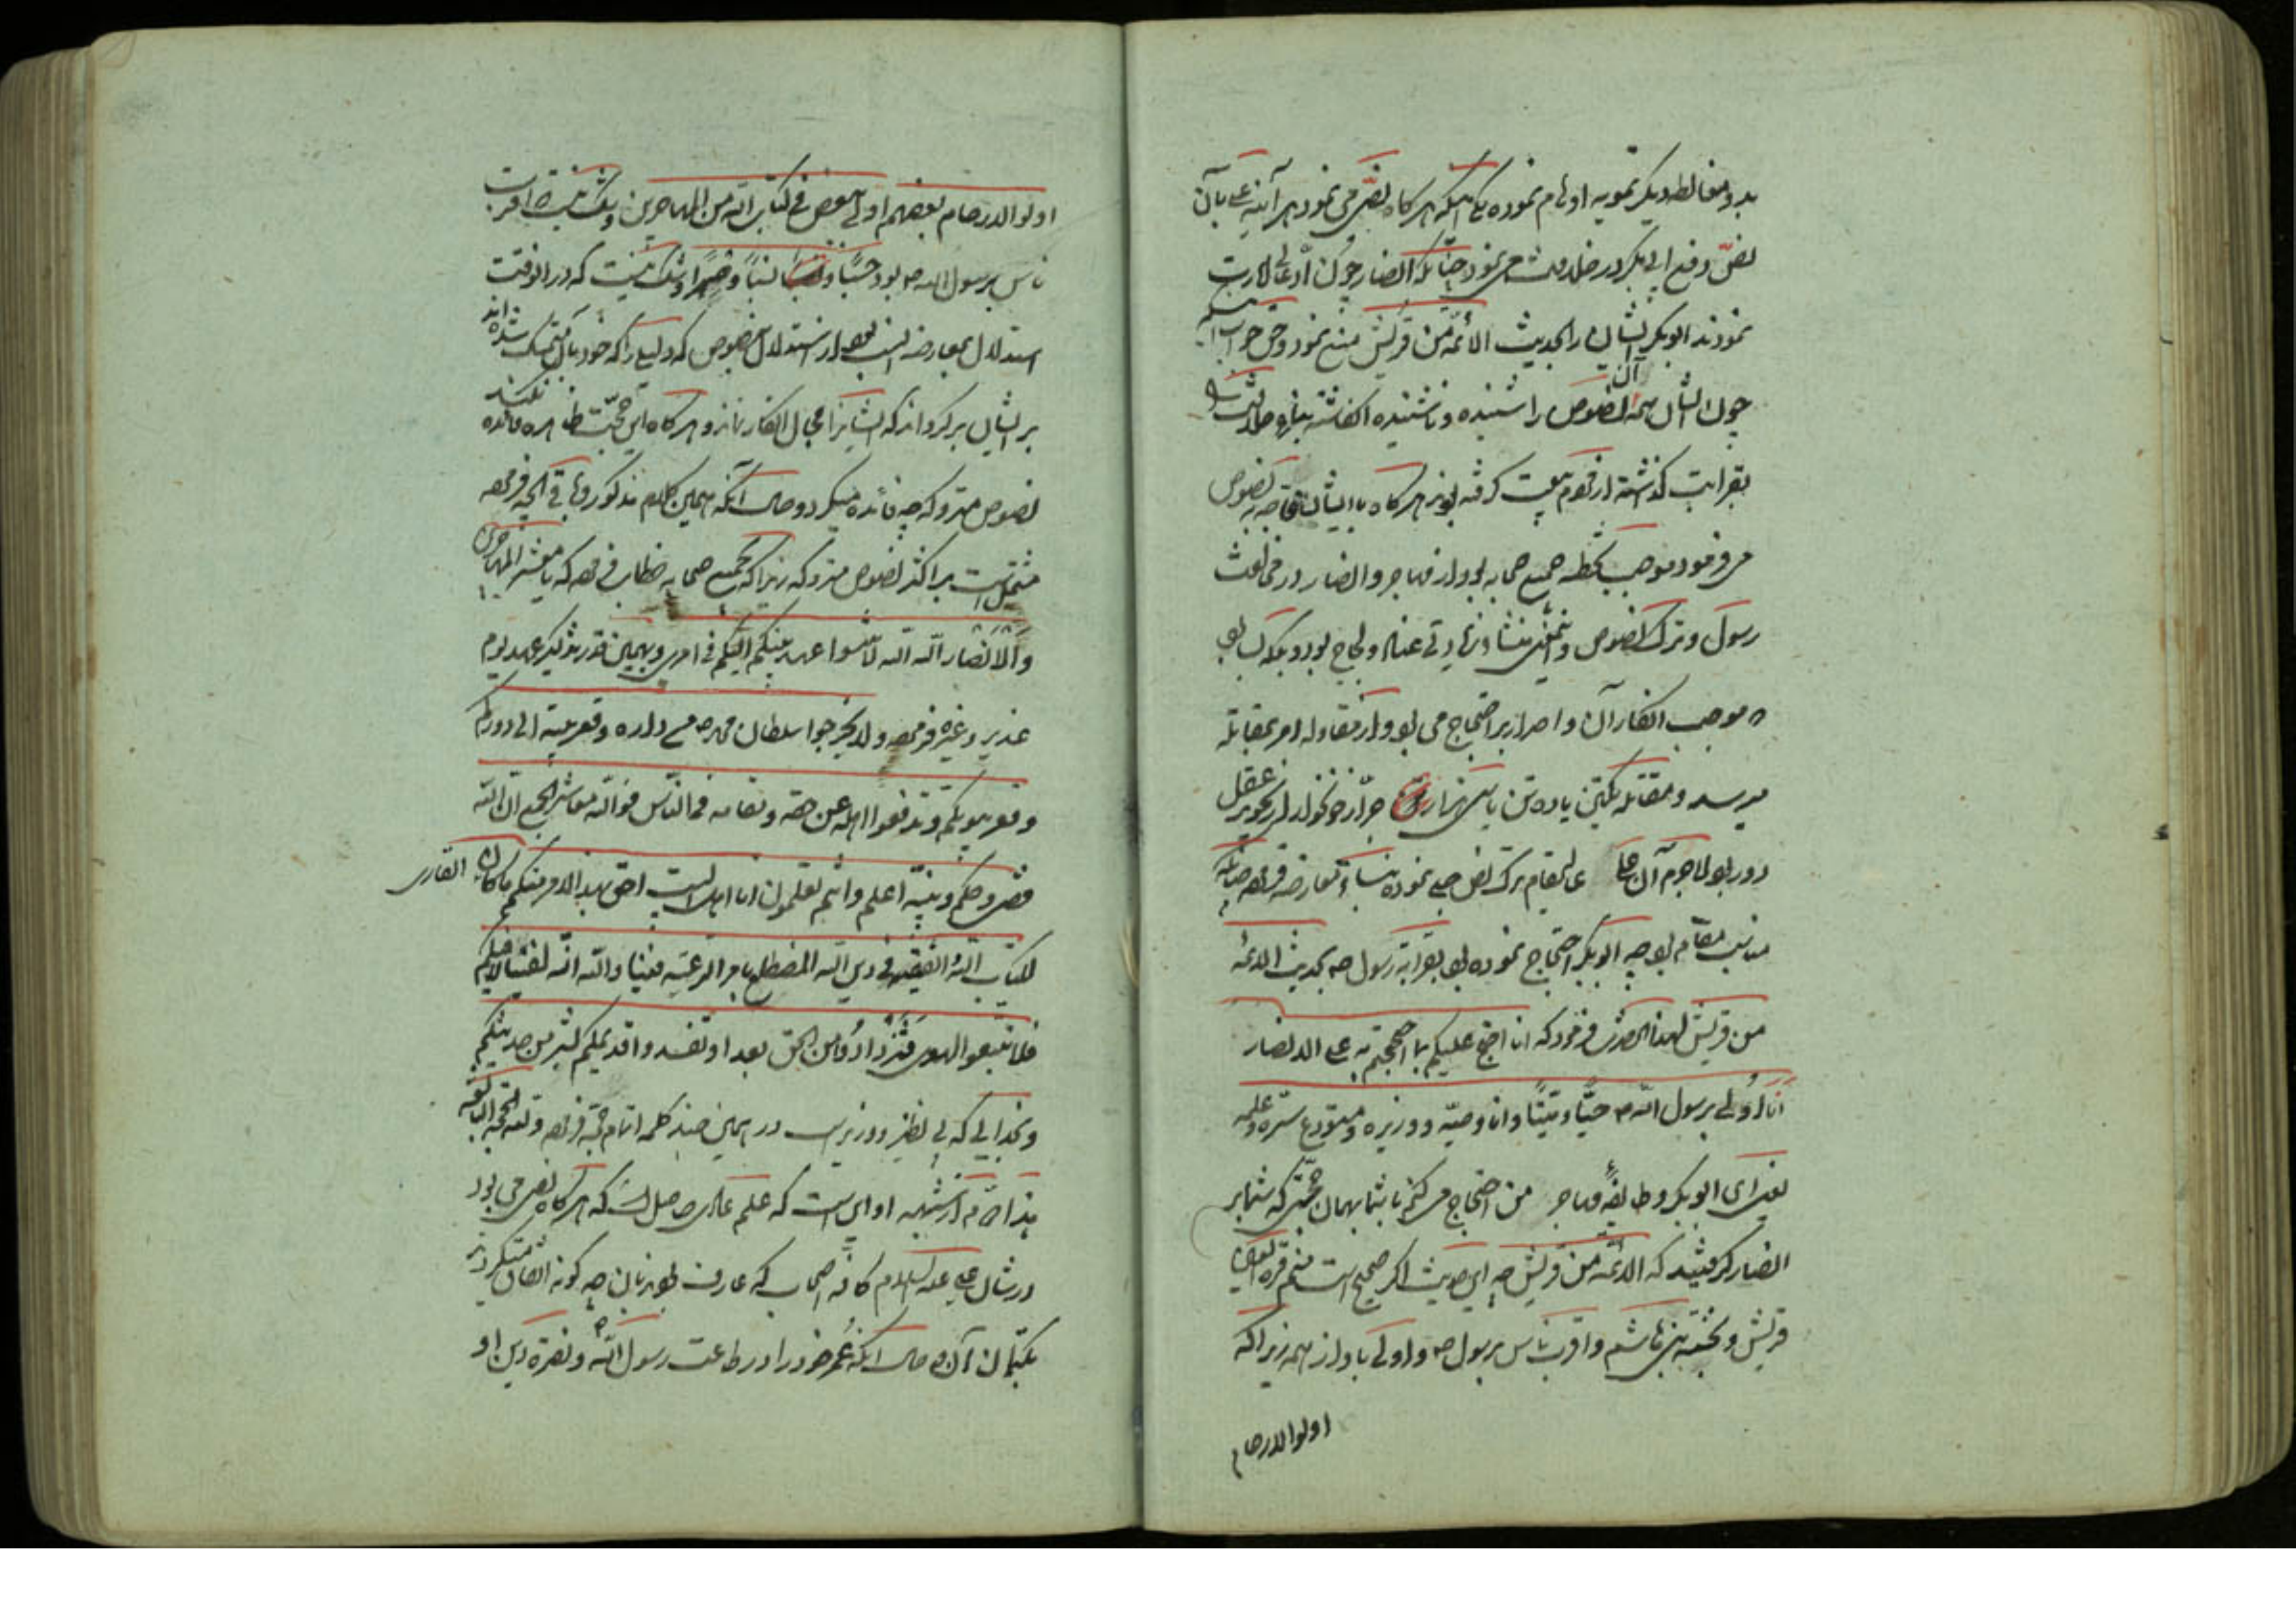 بدو مغالطه دیگر تمویه اوهام نموده یکی آنکه هرگاه نصّی می نمود هر آینه علی بآن
نص دفع ابی بکر در خلافت می نمود چنانکه انصار چون ادّعای امارت
نمودند ابوبکر ایشان را بحدیث الائمّة من قریش منع نمود و حق جواب
چون ایشان همه آن نصوص را شنیده و ناشنیده انگاشته بنابر
بقرابت گذشته از قوم بیعت گرفته بودند هرگاه با ایشان محاجه بنصوص
می فرمود موجب تخطئه جمیع صحابه بود از مهاجر و انصار در مخالفت
رسول و ترک نصوص و زیادتی عناد و لجاج بود و بلکه
موجب انکار آن و اصرار بر احتجاج می بود و از مقاوله امر بمقاتله
میرسد و مقاتله یکتن یا ده تن با سی هزار جرّار خونخوار از تجویز عقل
دور بود لاجرم آن عالیمقام ترک نص جلی نموده
مناسب مقام بود چه ابوبکر احتجاج نموده بود بقرابة رسول ص بحدیث الائمّه
من قریش لهذا حضرت فرمود که انا احتج علیکم بما احتججتم به علی الانصار
انا اولی برسول الله ص حیّا و میّتا و انا وصیّه و وزیره و مستودع سرّه و علمه
یعنی ای ابوبکر و طایفهٔ مهاجر من احتجاج می کنم با شما بهمان حجتی که شما بر
انصار گرفتید که الائمّه من قریش چه این حدیث اگر صحیح است منم قرة العین
قریش و نخبته بنی هاشم و اقرب ناس برسول ص و اولی باو از همه زیرا که
اولوا الارحام
اولوا الارحام بعضهم اولی ببعض فی کتاب الله من المهاجرین و شک نیست اقرب
ناس برسول الله ص بود حسبًا و نسبًا و شک نیست که در آنوقت
استدلال بمعارضه انسب بود از استدلال بنصوص که دلیلی را که خود بآن متمسک شده اند
بر ایشان برگرداند که ایشانرا مجال انکار نماند و هرگاه این حجّت ظاهره فائده نکند
نصوص متروکه چه فائده میکرد و حال آنکه همین کلام مذکور و باقی آنچه فرموده
مشتمل است بر اکثر نصوص متروکه زیرا که بجمیع صحابه خطاب فرموده که یا معشر المهاجرین
والانصار الله الله لا تنسوا عهد نبیکم الیکم فی امری و بهمین قدر تذکیر عهد یوم
غدیر و غیره فرموده ولا تخرجوا سلطان محمد ص من داره و قعر بیته الی دورکم
و قعر بیوتکم و تدفعوا اهله عن حقه و مقامه فی الناس فوالله معاشر الجمع ان الله
قضی و حکم و نبیّه اعلم و انتم تعلمون انا اهل البیت احق بهذا الامر منکم ما کان القاری
لکتاب الله الفقیه فی دین الله المضطلع بامر الرعیّه فینا والله انّه لفینا لا فیکم
فلا تتبعوا الهوی فتزدادوا من الحق بعدا و تفسدوا قدیمکم بشر من حدیثکم
و بخدایی که بی نظیر و وزیر است در همین چند کلمه اتمام حجّة فرموده و لله الحجّة البالغه
شبهه او این است که علم عادی حاصل است که هرگاه نصی می بود
در شأن علی علیه السلام کافه اصحاب که عارف بودند بآن چه گونه اتفاق میکردند
بکتمان آن و حال آنکه عُمر خود را در طاعت رسول الله ص و نصرة دین او